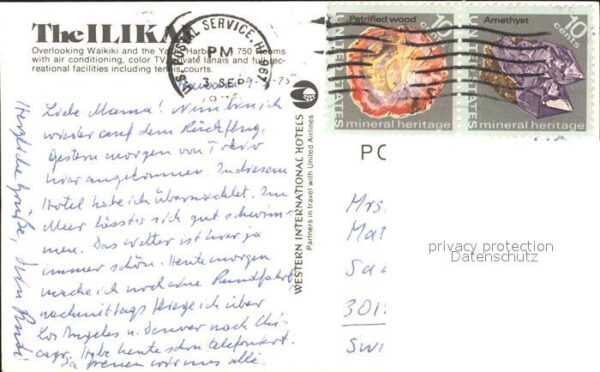 The ILIKAI
Overlooking Waikiki and the Yacht Harbor 750 rooms
with air conditioning, color TV, private lanais and full recreational
facilities including tennis courts.
U.S. POSTAL SERVICE, HI 967
PM
3 SEP
9-75
Petrified wood
10 cents
UNITED STATES
mineral heritage
Amethyst
10 cents
UNITED STATES
mineral heritage
Liebe Mama! Nun bin ich
wieder auf dem Rückflug.
Gestern morgen von Tokio
hier angekommen. In diesem
Hotel habe ich übernachtet. Im
Meer lässt es sich gut schwim-
men. Das Wetter ist hier ja
immer schön. Heute morgen
mache ich noch eine Rundfahrt,
nachmittags fliege ich über
Los Angeles u. Denver nach Chi-
cago. Habe heute schon telefoniert.
Da freuen wir uns alle.
Herzliche Grüße, Dein
WESTERN INTERNATIONAL HOTELS
Partners in travel with United Airlines
PO
Mrs.
Mat
Sa
301
Swi
privacy protection
Datenschutz